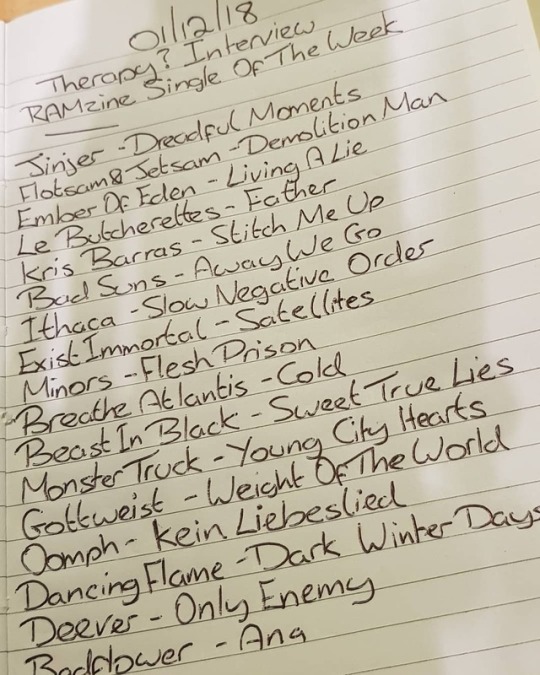 01/12/18
Therapy? Interview
RAMzine Single Of The Week
Jinjer - Dreadful Moments
Flotsam & Jetsam - Demolition Man
Ember Of Eden - Living A Lie
Le Butcherettes - Father
Kris Barras - Stitch Me Up
Bad Suns - Away We Go
Ithaca - Slow Negative Order
Exist Immortal - Satellites
Minors - Flesh Prison
Breathe Atlantis - Cold
Beast In Black - Sweet True Lies
Monster Truck - Young City Hearts
Gottweist - Weight Of The World
Oomph - Kein Liebeslied
Dancing Flame - Dark Winter Days
Deever - Only Enemy
Badflower - Ana